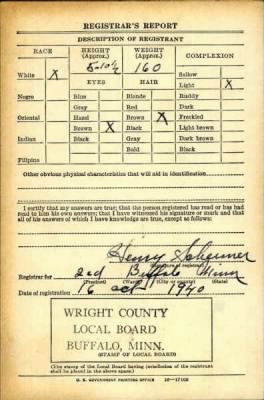 REGISTRAR'S REPORT
DESCRIPTION OF REGISTRANT
RACE
HEIGHT
(Approx.)
WEIGHT
(Approx.)
COMPLEXION
5-10½
160
White X
EYES
HAIR
Sallow
Light X
Negro
Blue
Blonde
Ruddy
Gray
Red
Dark
Oriental
Hazel
Brown X
Freckled
Brown X
Black
Light brown
Indian
Black
Gray
Dark brown
Bald
Black
Filipino
Other obvious physical characteristics that will aid in identification
I certify that my answers are true; that the person registered has read or has had
read to him his own answers; that I have witnessed his signature or mark and that
all of his answers of which I have knowledge are true, except as follows:
Henry
(Signature of registrar)
Registrar for 2nd Buffalo Minn
(Precinct) (City or county) (State)
Date of registration 16 Oct 1940
WRIGHT COUNTY
LOCAL BOARD
BUFFALO, MINN.
(STAMP OF LOCAL BOARD)
(The stamp of the Local Board having jurisdiction of the registrant
shall be placed in the above space)
U. S. GOVERNMENT PRINTING OFFICE